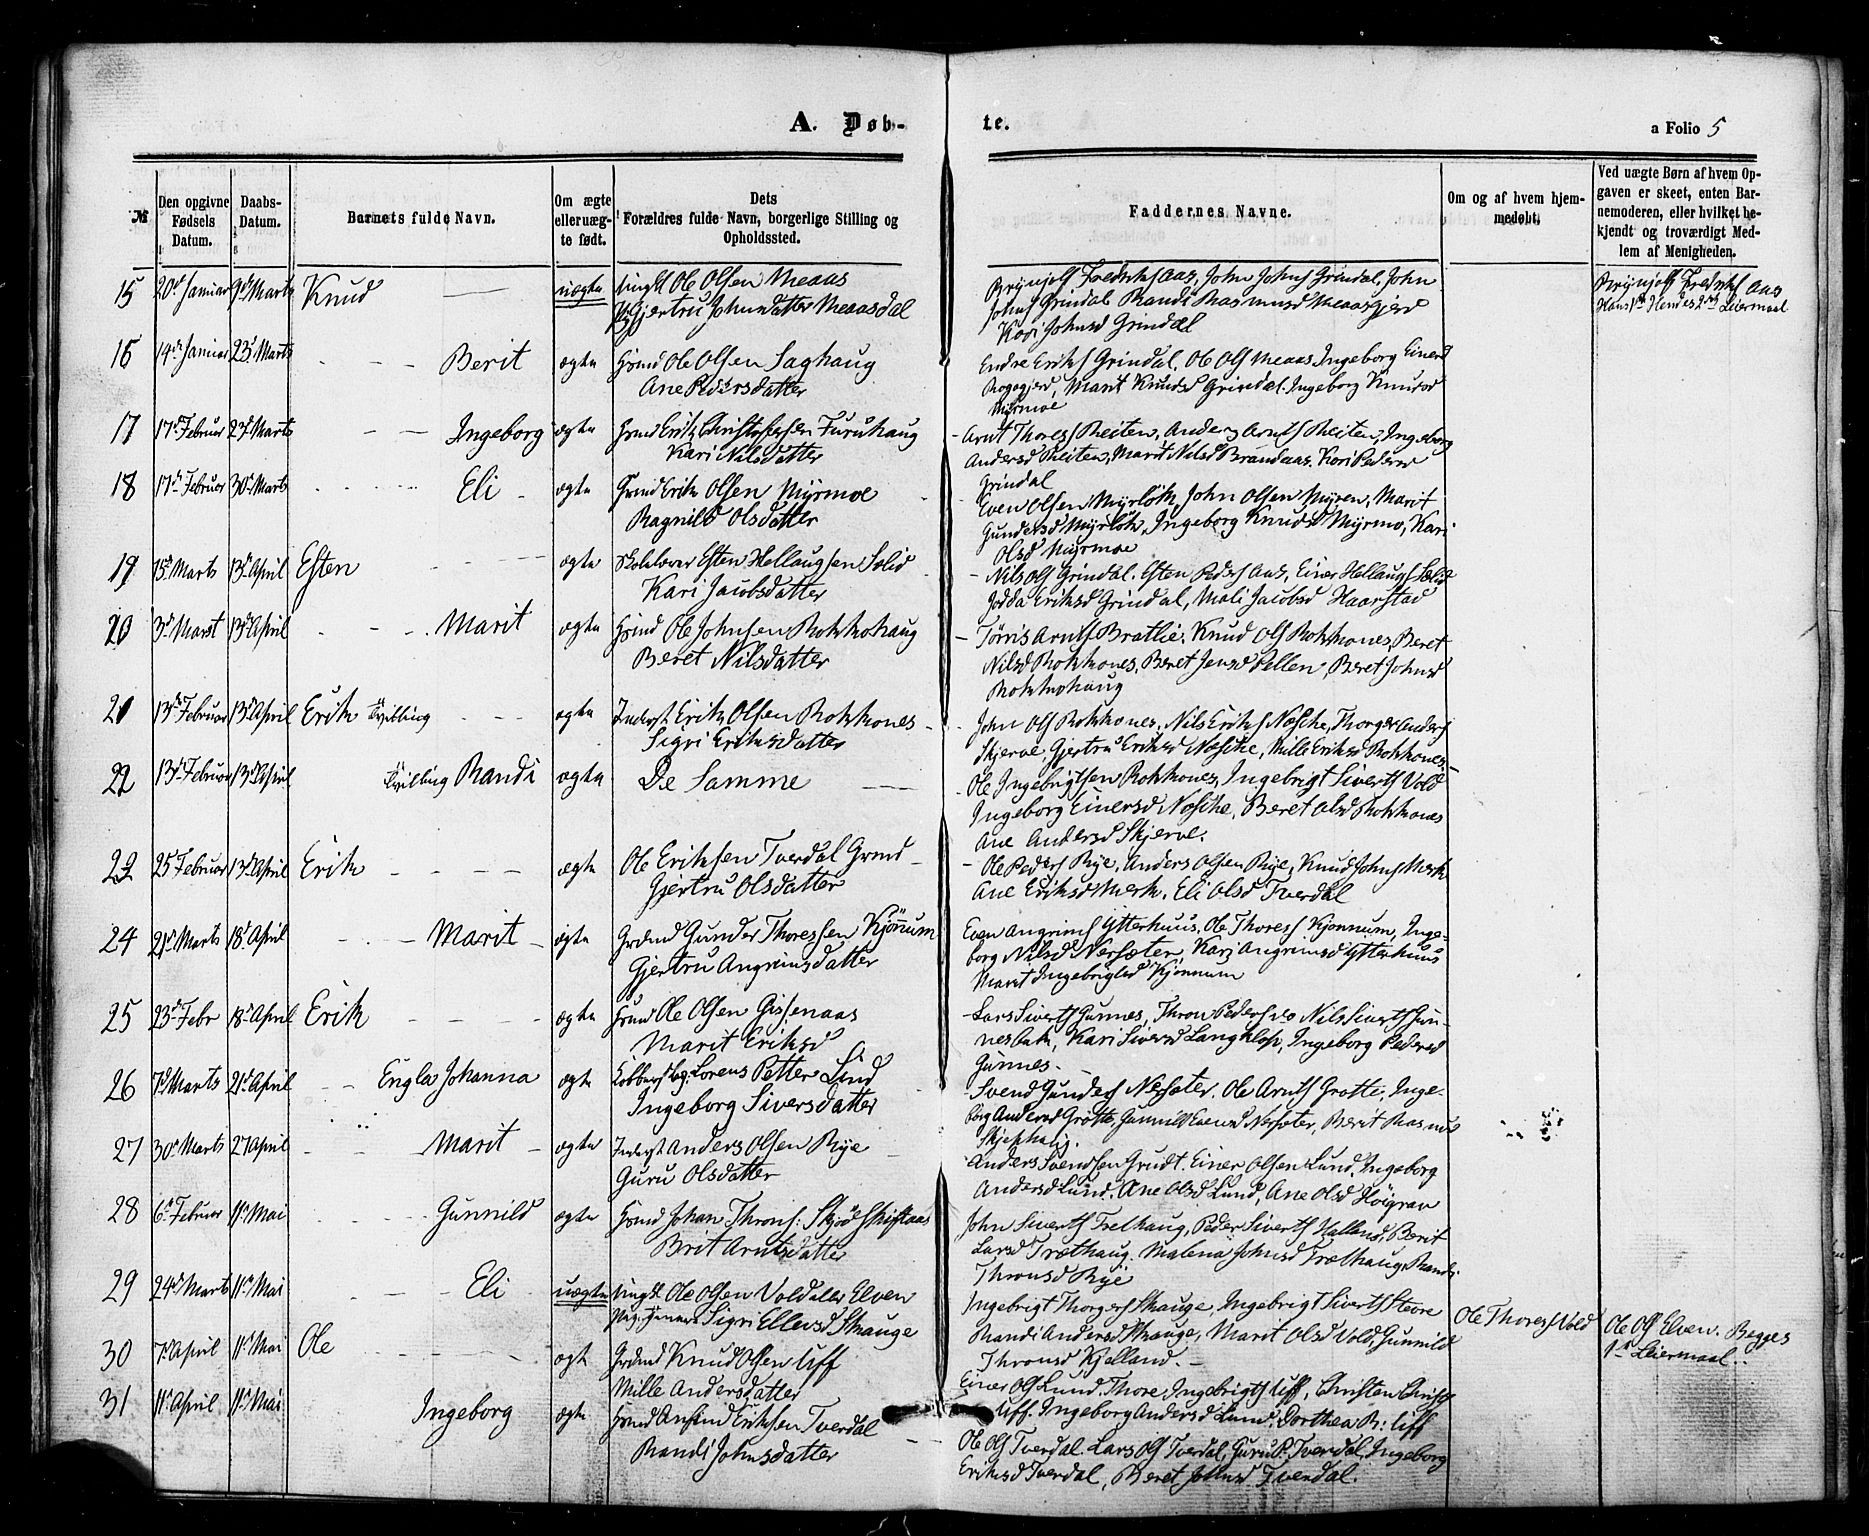 A. Døb-
te.
a Folio 5
№
Den opgivne Fødsels Datum.
Daabs-Datum.
Barnets fulde Navn.
Om ægte eller uægte født.
Dets Forældres fulde Navn, borgerlige Stilling og Opholdssted.
Faddernes Navne.
Om og af hvem hjemmedøbt.
Ved uægte Børn af hvem Opgaven er skeet, enten Barnemoderen, eller hvilket bekjendt og troværdigt Medlem af Menigheden.
15 20d Januar 9d Marts Knud uægte Ungk Ole Olsen Meaas
Gjertru Johnsdatter Meaasdal
Brynjolf Fredriks Aas, John Johns Grindal, John
Johns Grindal Randi Rasmusd Meaasgjerd
Kari Johnsd Grindal
Brynjolf Fredriks Aas
Hans 1ste Hendes 2det Leiermaal
16 14de Januar 23d Marts Berit ægte Grmd Ole Olsen Saghaug
Ane Pedersdatter
Endre Eriks Grindal, Ole Ols Meaas Ingeborg Einersd
Rogogjerd, Marit Knudsd Grindal. Ingeborg Knudsd
Myrmoe
17 17d Februar 23d Marts Ingeborg ægte Grmd Erik Christophersen Furuhaug
Kari Nilsdatter
Arnt Thores Reiten, Anders Arnts Reiten, Ingeborg
Andersd Reiten, Marit Nilsd Brandaas. Kari Pedersd
Grindal
18 17de Februar 30d Marts Eli ægte Grmd Erik Olsen Myrmoe
Ragnild Olsdatter
Even Olsen Myrløk, John Olsen Myren, Marit
Gundersd Myrløk, Ingeborg Knudsd Myrmo, Kari
Olsd Myrmoe
19 15d Marts 13d April Esten ægte Skolelærer Esten Hellaugsen Sølid
Kari Jacobsdatter
Nils Ols Grindal. Esten Peders Aas, Einer Hellaugs Sølid
Jodda Eriksd Grindal, Mali Jacobsd Haarstad
20 3d Marst 13d April Marit ægte Grmd Ole Johnsen Rokkohaug
Beret Nilsdatter
Tørris Arnts Bratlie. Knud Ols Rokkones, Beret
Nilsd Rokkones, Beret Jensd Pellen, Beret Johnsd
Rokkohaug
21 13de Februar 13d April Erik Tvilling ægte Inderst Erik Olsen Rokkones
Sigri Eriksdatter
John Ols Rokkones, Nils Eriks Næsche, Thorger Anders
Skjerve, Gjertru Eriksd Næsche, Mille Eriksd Rokkones
22 13d Februar 13d April Tvilling Randi ægte De Samme
Ole Ingebrigtsen Rokkones, Ingebrigt Siverts Vold
Ingeborg Einersd Næsche, Beret Olsd Rokkones
Ane Andersd Skjerve.
23 25 Februar 13d April Erik ægte Ole Eriksen Tverdal Grmd
Gjertru Olsdatter
Ole Peders Rye, Anders Olsen Rye, Knud Johns Merk
Ane Eriksd Merk. Eli Olsd Tverdal
24 21d Marts 18d April Marit ægte Grdmd Gunder Thoressen Kjønnum
Gjertru Angrimsdatter
Even Angrims Ytterhuus, Ole Thores Kjønnum, Inge-
borg Nilsd Nersæter, Kari Angrimsd Ytterhuus
Marit Ingebrigtsd Kjønnum
25 23d Febr 18d April Erik ægte Grmd Ole Olsen Gissenaas
Marit Eriksd
Lars Siverts Gunnes, Thron Peders do Nils Siverts Gun-
nesbak, Kari Siversd Langklop, Ingeborg Pedersd
Gunnes
26 7d Marts 21d April Engla Johanna ægte Lorens Petter Lind
Ingeborg Siversdatter
Svend Gunders Nersæter. Ole Arnts Grøtte, Inge-
borg Andersd Grøtte, Gunnild Evensd Nersæter, Berit Rasmus
27 30d Marts 27 April Marit ægte Inderst Anders Olsen Rye
Guru Olsdatter
Anders Svendsen Grudt. Einer Olsen Lund, Ingeborg
Andersd Lund. Ane Olsd Lund, Ane Olsd Høigrav
28 6d Februar 11d Mai Gunnild ægte Grmd Johan Throns: Skjødskiftaas
Brit Arntsdatter
John Siverts Trethaug, Peder Siverts Halland, Berit
Larsd Træthaug. Malena Johnsd Træthaug, Randi
Thronsd Rye
29 24d Marts 11d Mai Eli uægte Ungk Ole Olsen Vold eller Elven
Pig. Sigri Ellevsd Skauge
Ingebrigt Thorgers Skauge, Ingebrigt Siverts Steore
Randi Andersd Skauge, Marit Olsd Vold, Gunnild
Thronsd Kjelland.
Ole Thores Vold
Ole Ols Elven. Begges
1st Leiermaal.
30 7d April 11d Mai Ole ægt Grdmd Knud Olsen Uff
Mille Andersdatter
Einer Ols Lund, Thore Ingebrigts Uff, Christen Christs
Uff. Ingeborg Andersd Lund, Dorthea R: Uff
31 11d April 11d Mai Ingeborg ægte Grmd Amund Eriksen Tverdal
Randi Johnsdatter
Ole Ols Tverdal Lars Ols Tverdal, Guru P. Tverdal, Ingeborg
Eriksd Tverdal, Beret Johnsd Tverdal.